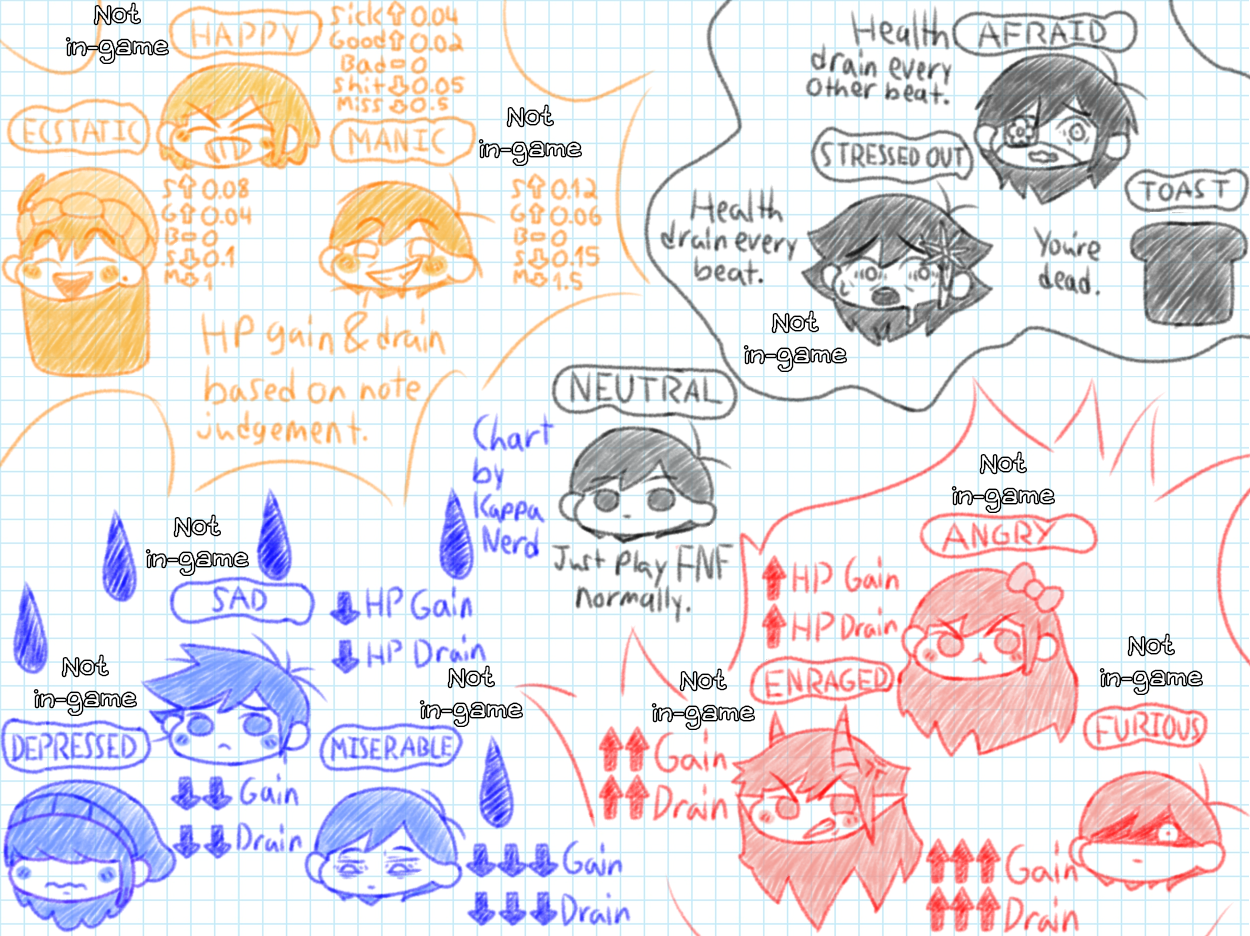 Not
in-game
HAPPY
Sick⇧0.04
Good⇧0.02
Bad=0
Shit⇩0.05
Miss⇩0.5
ECSTATIC
S⇧0.08
G⇧0.04
B=0
S⇩0.1
M⇩1
MANIC
Not
in-game
S⇧0.12
G⇧0.06
B=0
S⇩0.15
M⇩1.5
HP gain & drain
based on note
judgement.
Health
drain every
other beat.
AFRAID
STRESSED OUT
Health
drain every
beat.
Not
in-game
TOAST
You're
dead.
NEUTRAL
Just Play FNF
normally.
Chart
by
Kappa
Nerd
Not
in-game
SAD
⬇HP Gain
⬇HP Drain
Not
in-game
DEPRESSED
⬇⬇Gain
⬇⬇Drain
Not
in-game
MISERABLE
⬇⬇⬇Gain
⬇⬇⬇Drain
Not
in-game
ANGRY
⬆HP Gain
⬆HP Drain
Not
in-game
ENRAGED
⬆⬆Gain
⬆⬆Drain
Not
in-game
FURIOUS
⬆⬆⬆Gain
⬆⬆⬆Drain